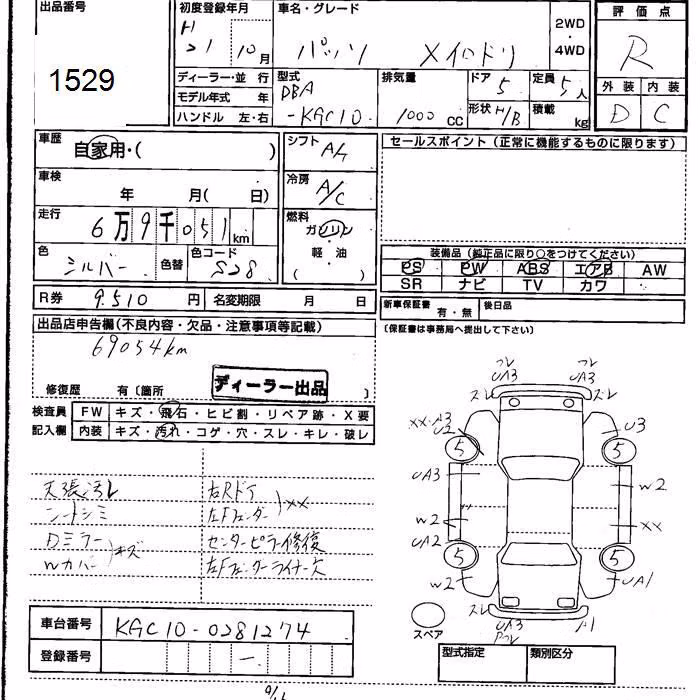 出品番号
1529
初度登録年月
H
21 10 月
車名・グレード
パッソ Xイロドリ
2WD
・
4WD
評価点
R
外装 内装
D C
ディーラー・並行
モデル年式 年
ハンドル 左・右
型式
DBA
-KGC10
排気量
1000 CC
ドア 5
形状 H/B
定員 5 人
積載 kg
車歴
自家用・( )
車検
年 月( 日)
走行
6万9千051 km
色 シルバー 色替 色コード S28
シフト A/T
冷房 A/C
燃料
ガソリン
・
軽・油
( )
セールスポイント(正常に機能するものに限ります)
装備品(純正品に限り○をつけてください)
PS PW ABS エアB AW
SR ナビ TV カワ
R券 9.510 円 名変期限 月 日
新車保証書 有・無 後日品
(保証書は事務局へ提出して下さい)
出品店申告欄(不良内容・欠品・注意事項等記載)
69054km
修復歴 有(箇所 )
ディーラー出品
検査員 FW キズ・飛石・ヒビ割・リペア跡・X要
記入欄 内装 キズ・汚れ・コゲ・穴・スレ・キレ・破レ
天張汚レ 右Rドア
シートシミ 左Fフェンダー XX
Dミラー センターピラー修復
Wカバー キズ 左Fフェンダーライナー欠
フレ フレ
UA3 UA3
スレ スレ
XX・A3
U2
U3
5 5
UA3 W2
W2 XX
UA2
5 5
W2 UA1
スレ
UA3
A1
スペア
車台番号 KGC10-0281274
登録番号 ー
型式指定 類別区分